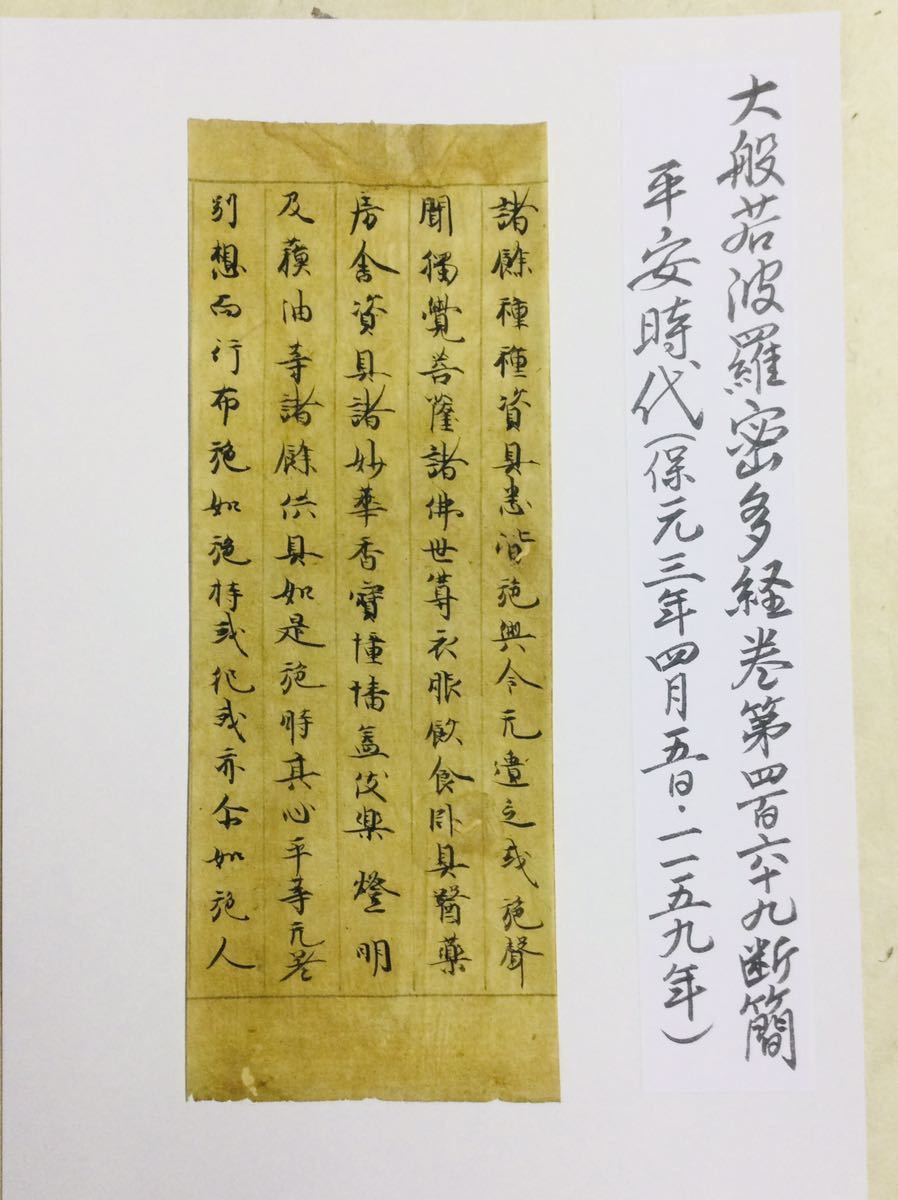 大般若波羅密多経巻第四百六十九断簡
平安時代（保元三年四月五日・一一五九年）
諸餘種種資具悉皆施與令无遺乏或施聲
聞獨覺菩薩諸佛世尊衣服飲食卧具醫藥
房舍資具諸妙華香寶幢幡蓋伎樂燈明
及蘇油等諸餘供具如是施時其心平等无差
別想而行布施如施持戒犯戒亦尒如施人